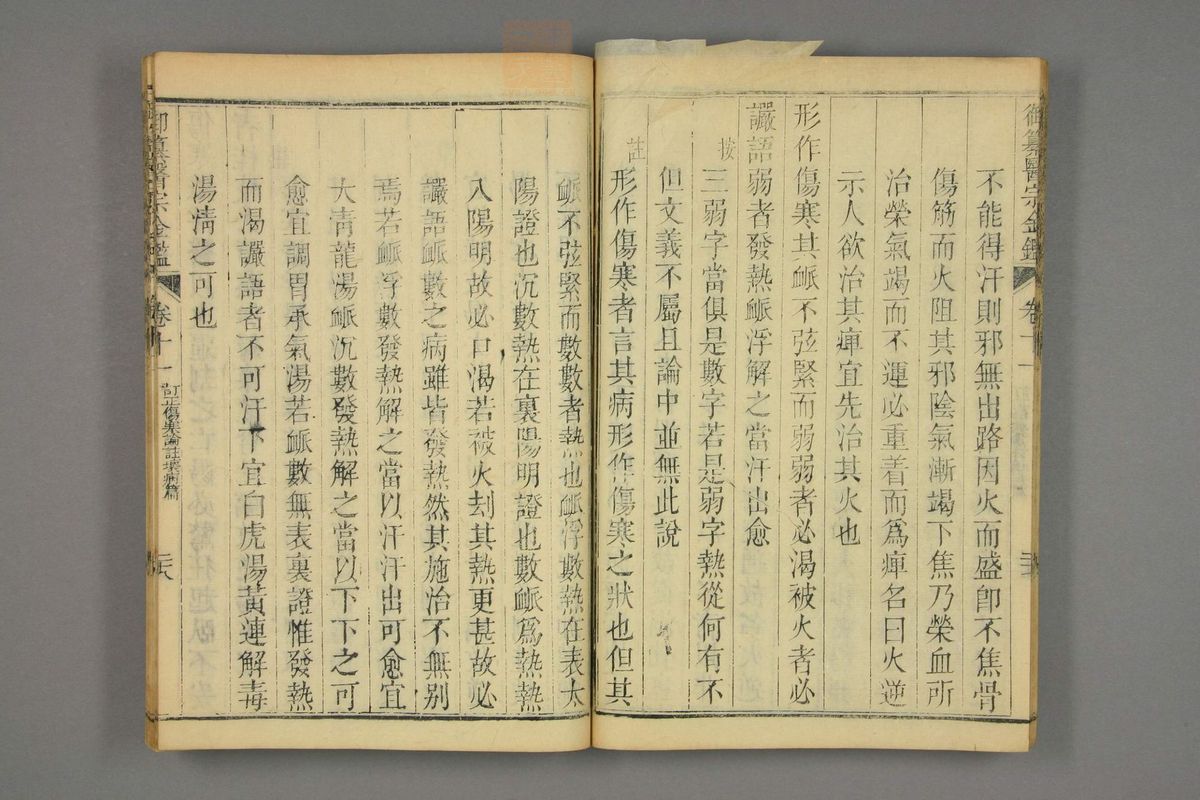 御纂醫宗金鑑 卷十一
不能得汗則邪無出路因火而盛卽不焦骨
傷筋而火阻其邪陰氣漸竭下焦乃榮血所
治榮氣竭而不運必重着而爲痺名曰火逆
示人欲治其痺宜先治其火也
形作傷寒其脈不弦緊而弱弱者必渴被火者必
讝語弱者發熱脈浮解之當汗出愈
按 三弱字當俱是數字若是弱字熱從何有不
但文義不屬且論中並無此說
註 形作傷寒者言其病形作傷寒之狀也但其
脈不弦緊而數數者熱也脈浮數熱在表太
陽證也沉數熱在裏陽明證也數脈爲熱熱
入陽明故必口渴若被火刦其熱更甚故必
讝語脈數之病雖皆發熱然其施治不無別
焉若脈浮數發熱解之當以汗汗出可愈宜
大青龍湯脈沉數發熱解之當以下下之可
愈宜調胃承氣湯若脈數無表裏證惟發熱
而渴讝語者不可汗下宜白虎湯黃連解毒
湯清之可也
御纂醫宗金鑑 卷十一 訂正傷寒論註壞病篇 二六